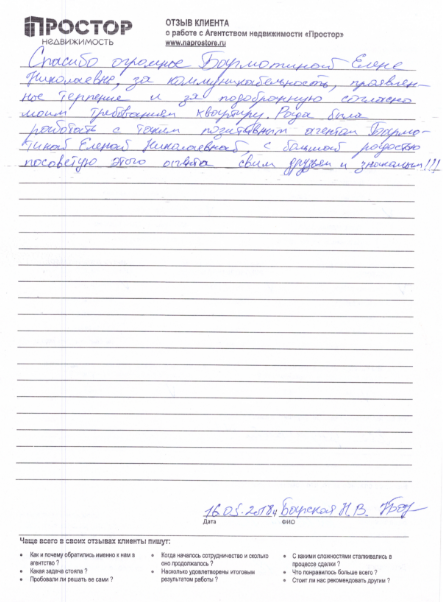 ПРОСТОР
НЕДВИЖИМОСТЬ
ОТЗЫВ КЛИЕНТА
о работе с Агентством недвижимости «Простор»
www.naprostore.ru
Спасибо огромное Бархоткиной Елене
Николаевне, за коммуникабельность, проявлен-
ное терпение и за подобранную согласно
моим требованиям квартиру. Рада была
работать с таким позитивным агентом
Еленой Николаевной, с большой радостью
посоветую этого агента своим друзьям и знакомым!!!
16.05.2018г Боярская Н.В.
Дата ФИО
Чаще всего в своих отзывах клиенты пишут:
• Как и почему обратились именно к нам в агентство ?
• Какая задача стояла ?
• Пробовали ли решать ее сами ?
• Когда началось сотрудничество и сколько оно продолжалось ?
• Насколько удовлетворены итоговым результатом работы ?
• С какими сложностями сталкивались в процессе сделки ?
• Что понравилось больше всего ?
• Стоит ли нас рекомендовать другим ?